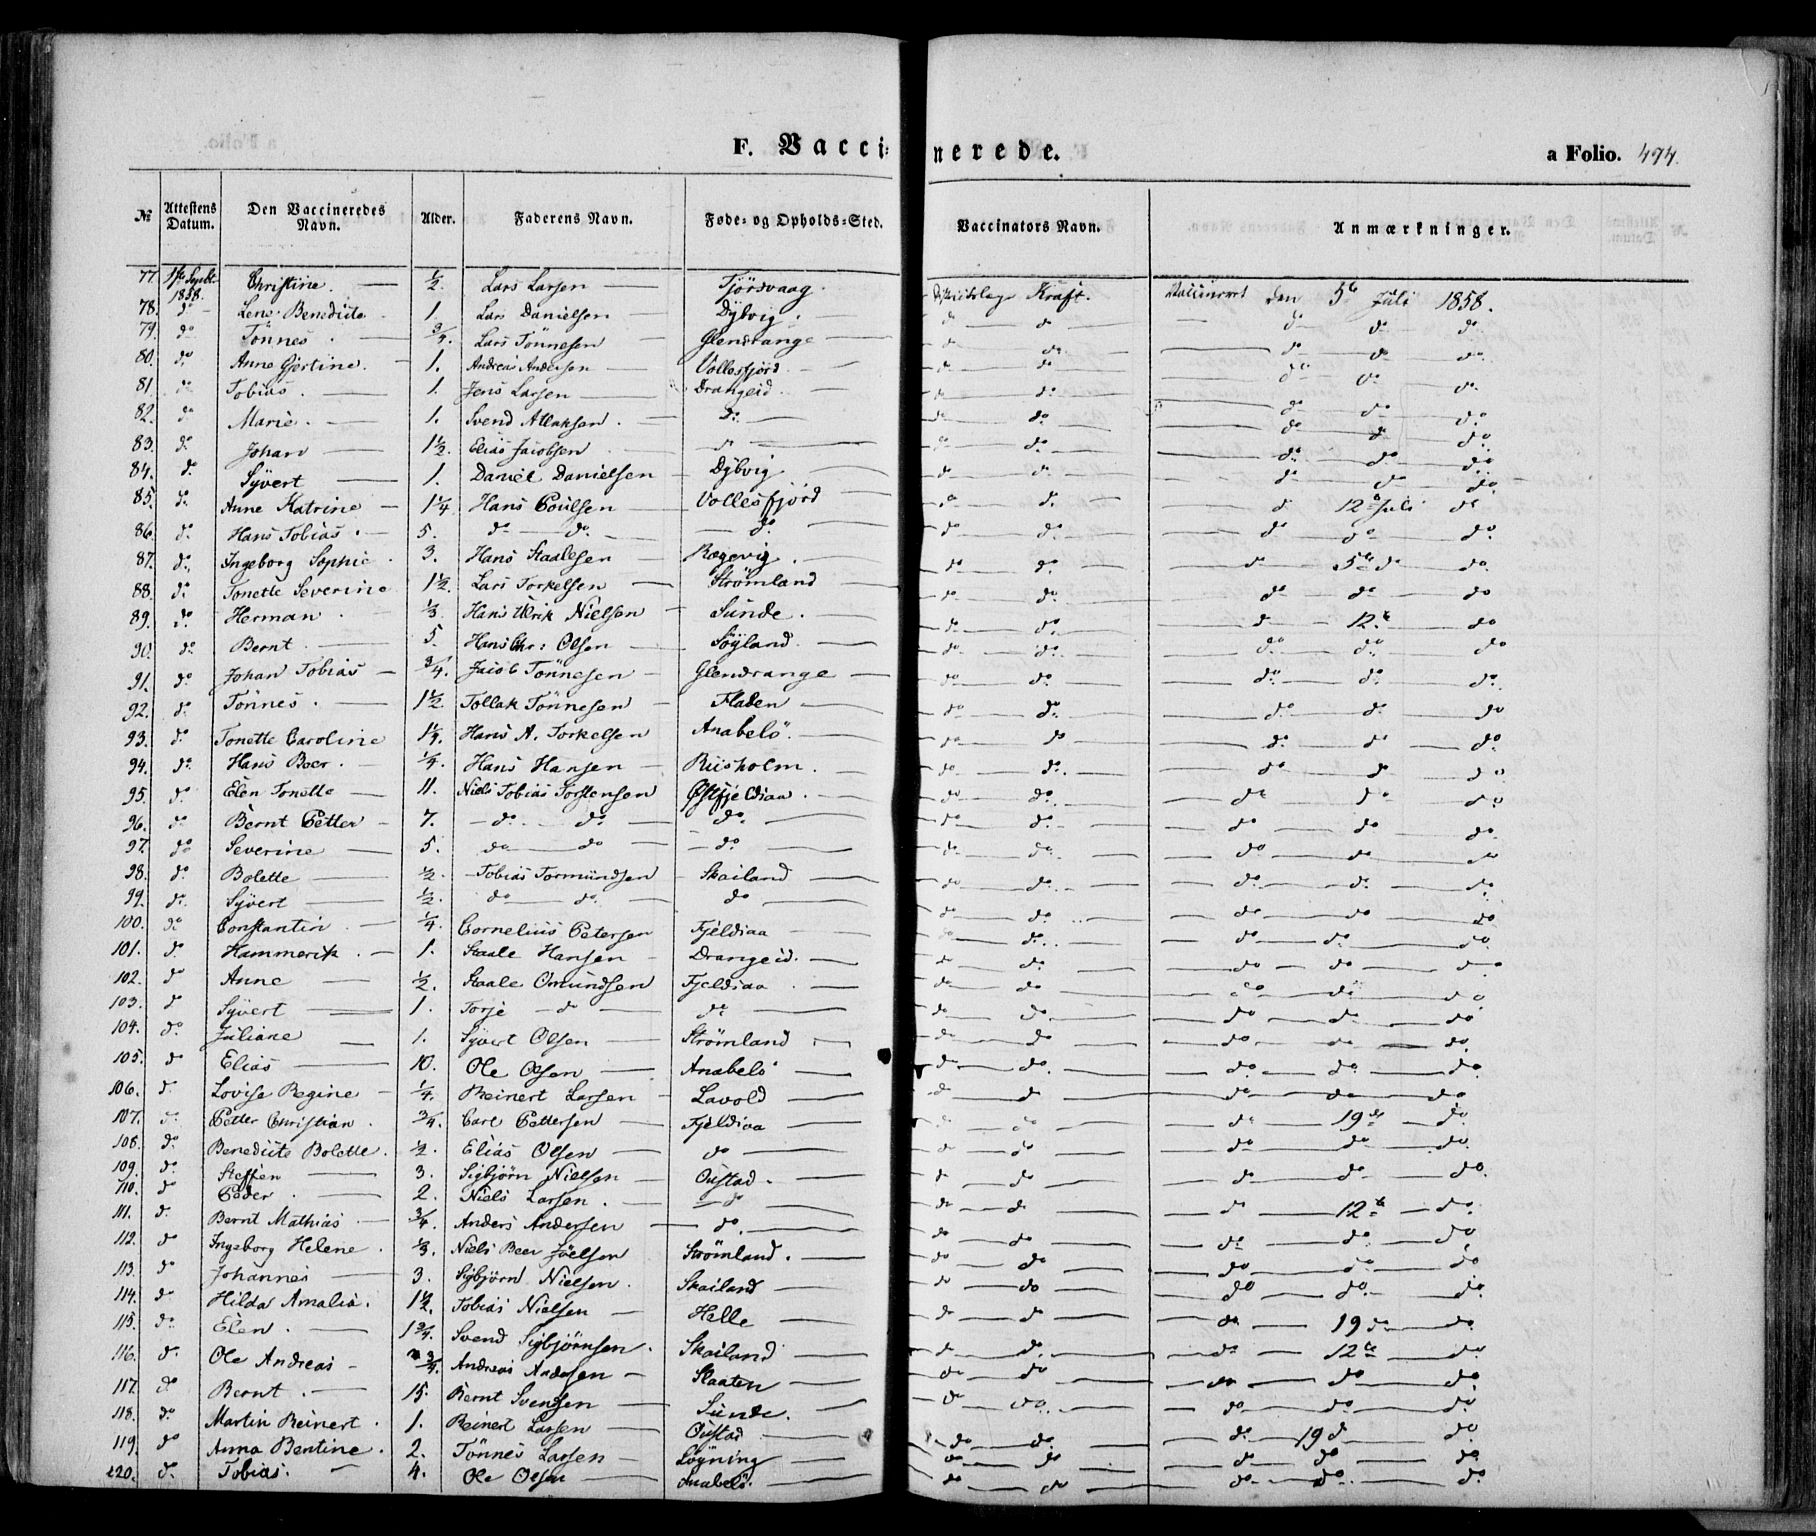 F. Vaccinerede.
a Folio. 474.
№ Attestens Datum. Den Vaccineredes Navn. Alder. Faderens Navn. Føde- og Opholds-Sted. Vaccinators Navn. Anmærkninger.
77. 1ste Septbr 1858. Christine. ½ Lars Larsen Tjörsvaag. Kraft. Vaccineret den 5te Juli 1858.
78. do Lene Benedicte 1. Lars Danielsen Dÿbvig. do do do do do
79. do Tönnes. ¾. Lars Tönnesen Glendrange do do do do do
80. do Anne Gjertine. 1. Andreas Andersen Vollesfjord. do do do do do
81. do Tobias. 1. Jens Larsen Drangeid. do do do do do
82. do Marie. 1. Svend Atlaksen. do do do do do do
83. do Johan 1½. Elias Jacobsen do do do do do do
84. do Sÿvert 1. Daniel Danielsen Dÿbvig do do do do do
85. do Anne Katrine 1¼ Hans Poulsen Vollesfjord do do do 12te Juli do
86. do Hans Tobias. 5. do do do do do do do do
87. do Ingeborg Sophie. 3. Hans Staalesen Rægevig. do do do 5te do do
88. do Tonette Severine 1½. Lars Torkelsen Strømland do do do do do
89. do Herman ⅓. Hans Ulrik Nielsen Sunde. do do do 12te do
90. do Bernt. 5. Hans Chr: Olsen Söÿland. do do do do do
91. do Johan Tobias ¾. Jacob Tönnesen Glendrange do do do do do
92. do Tönnes. 1½. Tollak Tönnesen Fladen do do do do do
93. do Tonette Caroline 1¼. Hans A. Torkelsen Anabelö. do do do do do
94. do Hans Beer. ¼. Hans Hansen Riisholm. do do do do do
95. do Elen Tonette 11. Niels Tobias Torstensen Østfjeldiaa. do do do do do
96. do Bernt Petter 7. do do do do do do do do
97. do Severine 5. do do do do do do do do
98. do Bolette ½. Tobias Tormundsen Skailand do do do do do
99. do Sÿvert ½. do do do do do do do do
100. do Constantin ¼. Cornelius Petersen Fjeldiaa do do do do do
101. do Hammerik. 1. Staale Hansen Drangeid. do do do do do
102. do Anne ½. Staale Omundsen Fjeldiaa. do do do do do
103. do Sÿvert 1. Torje do do do do do do do
104. do Juliane 1. Sÿvert Olsen Strømland do do do do do
105. do Elias 10. Ole Olsen Anabelö do do do do do
106. do Lovise Regine ¼. Reinert Larsen Lavold do do do do do
107. do Petter Christian. ¾. Carl Pettersen Fjeldiaa do do do 19de do
108. do Benedicte Bolette. ½. Elias Olsen do do do do do do
109. do Steffen 3. Sigbjørn Nielsen Oustad. do do do do do
110. do Peder. 2. Niels Larsen. do do do do 12te do
111. do Bernt Mathias ¾. Anders Andersen do. do do do do do
112. do Ingeborg Helene. ⅓. Niels Beer Joelsen Strømland. do do do do do
113. do Johannes 3. Sigbjørn Nielsen. Skailand do do do do do
114. do Hilda Amalia. 1½. Tobias Nielsen Helle do do do 19de do
115. do Elen. 1¾. Svend Sigbjørnsen. Skailand do do do 12te do
116. do Ole Andreas ¾. Andreas Andersen Staaten do do do do do
117. do Bernt. 15. Bernt Svensen Sunde. do do do do do
118. do Martin Reinert. 1. Reinert Larsen Oustad do do do 19de do
119. do Anna Bentine. 2. Tönnes Larsen Löÿning do do do do do
120. do Tobias. 4. Ole Olsen Anabelö. do do do do do